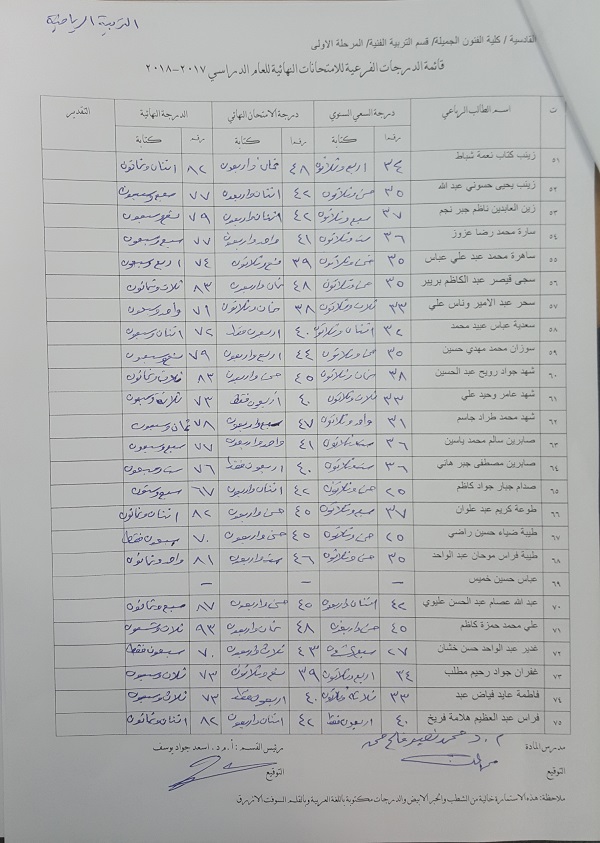 التربية الرياضية
القادسية / كلية الفنون الجميلة/ قسم التربية الفنية/ المرحلة الاولى
قائمة الدرجات الفرعية للامتحانات النهائية للعام الدراسي ٢٠١٧-٢٠١٨
ت اسم الطالب الرباعي درجة السعي السنوي درجة الامتحان النهائي الدرجة النهائية التقدير
رقما كتابة رقما كتابة رقما كتابة
٥١ زينب كتاب نعمة شباط ٣٤ اربع وثلاثون ٤٨ ثمان واربعون ٨٢ اثنان وثمانون
٥٢ زينب يحيى حسوني عبد الله ٣٥ خمس وثلاثون ٤٢ اثنان واربعون ٧٧ سبع وسبعون
٥٣ زين العابدين ناظم جبر نجم ٣٧ سبع وثلاثون ٤٢ اثنان واربعون ٧٩ تسع وسبعون
٥٤ سارة محمد رضا عزوز ٣٦ ست وثلاثون ٤١ واحد واربعون ٧٧ سبع وسبعون
٥٥ ساهرة محمد عبد علي عباس ٣٥ خمس وثلاثون ٣٩ تسع وثلاثون ٧٤ اربع وسبعون
٥٦ سجى قيصر عبد الكاظم بريبر ٣٥ خمس وثلاثون ٤٨ ثمان واربعون ٨٣ ثلاث وثمانون
٥٧ سحر عبد الامير وناس علي ٣٣ ثلاث وثلاثون ٣٨ ثمان وثلاثون ٧١ واحد وسبعون
٥٨ سعدية عباس عبيد محمد ٣٢ اثنان وثلاثون ٤٠ اربعون فقط ٧٢ اثنان وسبعون
٥٩ سوزان محمد مهدي حسين ٣٥ خمس وثلاثون ٤٤ اربع واربعون ٧٩ تسع وسبعون
٦٠ شهد جواد رويح عبد الحسين ٣٨ ثمان وثلاثون ٤٥ خمس واربعون ٨٣ ثلاث وثمانون
٦١ شهد عامر وحيد علي ٣٣ ثلاث وثلاثون ٤٠ اربعون فقط ٧٣ ثلاثة وسبعون
٦٢ شهد محمد طراد جاسم ٣١ واحد وثلاثون ٤٧ سبع واربعون ٧٨ ثمان وسبعون
٦٣ صابرين سالم محمد ياسين ٣٦ ستة وثلاثون ٤١ واحد واربعون ٧٧ سبع وسبعون
٦٤ صابرين مصطفى جبر هاني ٣٦ ست وثلاثون ٤٠ اربعون فقط ٧٦ ست وسبعون
٦٥ صدام جبار جواد كاظم ٢٥ خمس وثلاثون ٤٢ اثنان واربعون ٦٧ سبع وستون
٦٦ طوعة كريم عبد علوان ٣٧ سبع وثلاثون ٤٥ خمس واربعون ٨٢ اثنان وثمانون
٦٧ طيبة ضياء حسين راضي ٢٥ خمس وثلاثون ٤٥ خمس واربعون ٧٠ سبعون فقط
٦٨ طيبة فراس موحان عبد الواحد ٣٥ خمس وثلاثون ٤٦ ست واربعون ٨١ واحد وثمانون
٦٩ عباس حسين خميس – – –
٧٠ عبد الله عصام عبد الحسن عليوي ٤٢ اثنان واربعون ٤٥ خمس واربعون ٨٧ سبع وثمانون
٧١ علي محمد حمزة كاظم ٤٥ خمس واربعون ٤٨ ثمان واربعون ٩٣ ثلاث وتسعون
٧٢ غدير عبد الواحد حسن خشان ٢٧ سبع وعشرون ٤٣ ثلاث واربعون ٧٠ سبعون فقط
٧٣ غفران جواد رحيم مطلب ٣٤ اربع وثلاثون ٣٩ تسع وثلاثون ٧٣ ثلاث وسبعون
٧٤ فاطمة عايد فياض عبد ٣٣ ثلاثة وثلاثون ٤٠ اربعون فقط ٧٣ ثلاث وسبعون
٧٥ فراس عبد العظيم هلامة فريخ ٤٠ اربعون فقط ٤٢ اثنان واربعون ٨٢ اثنان وثمانون
مدرس المادة رئيس القسم : أ.م.د. اسعد جواد يوسف
التوقيع التوقيع
ملاحظة: هذه الاستمارة خالية من الشطب والحبر الابيض والدرجات مكتوبة باللغة العربية وبالقلم السوفت الازرق